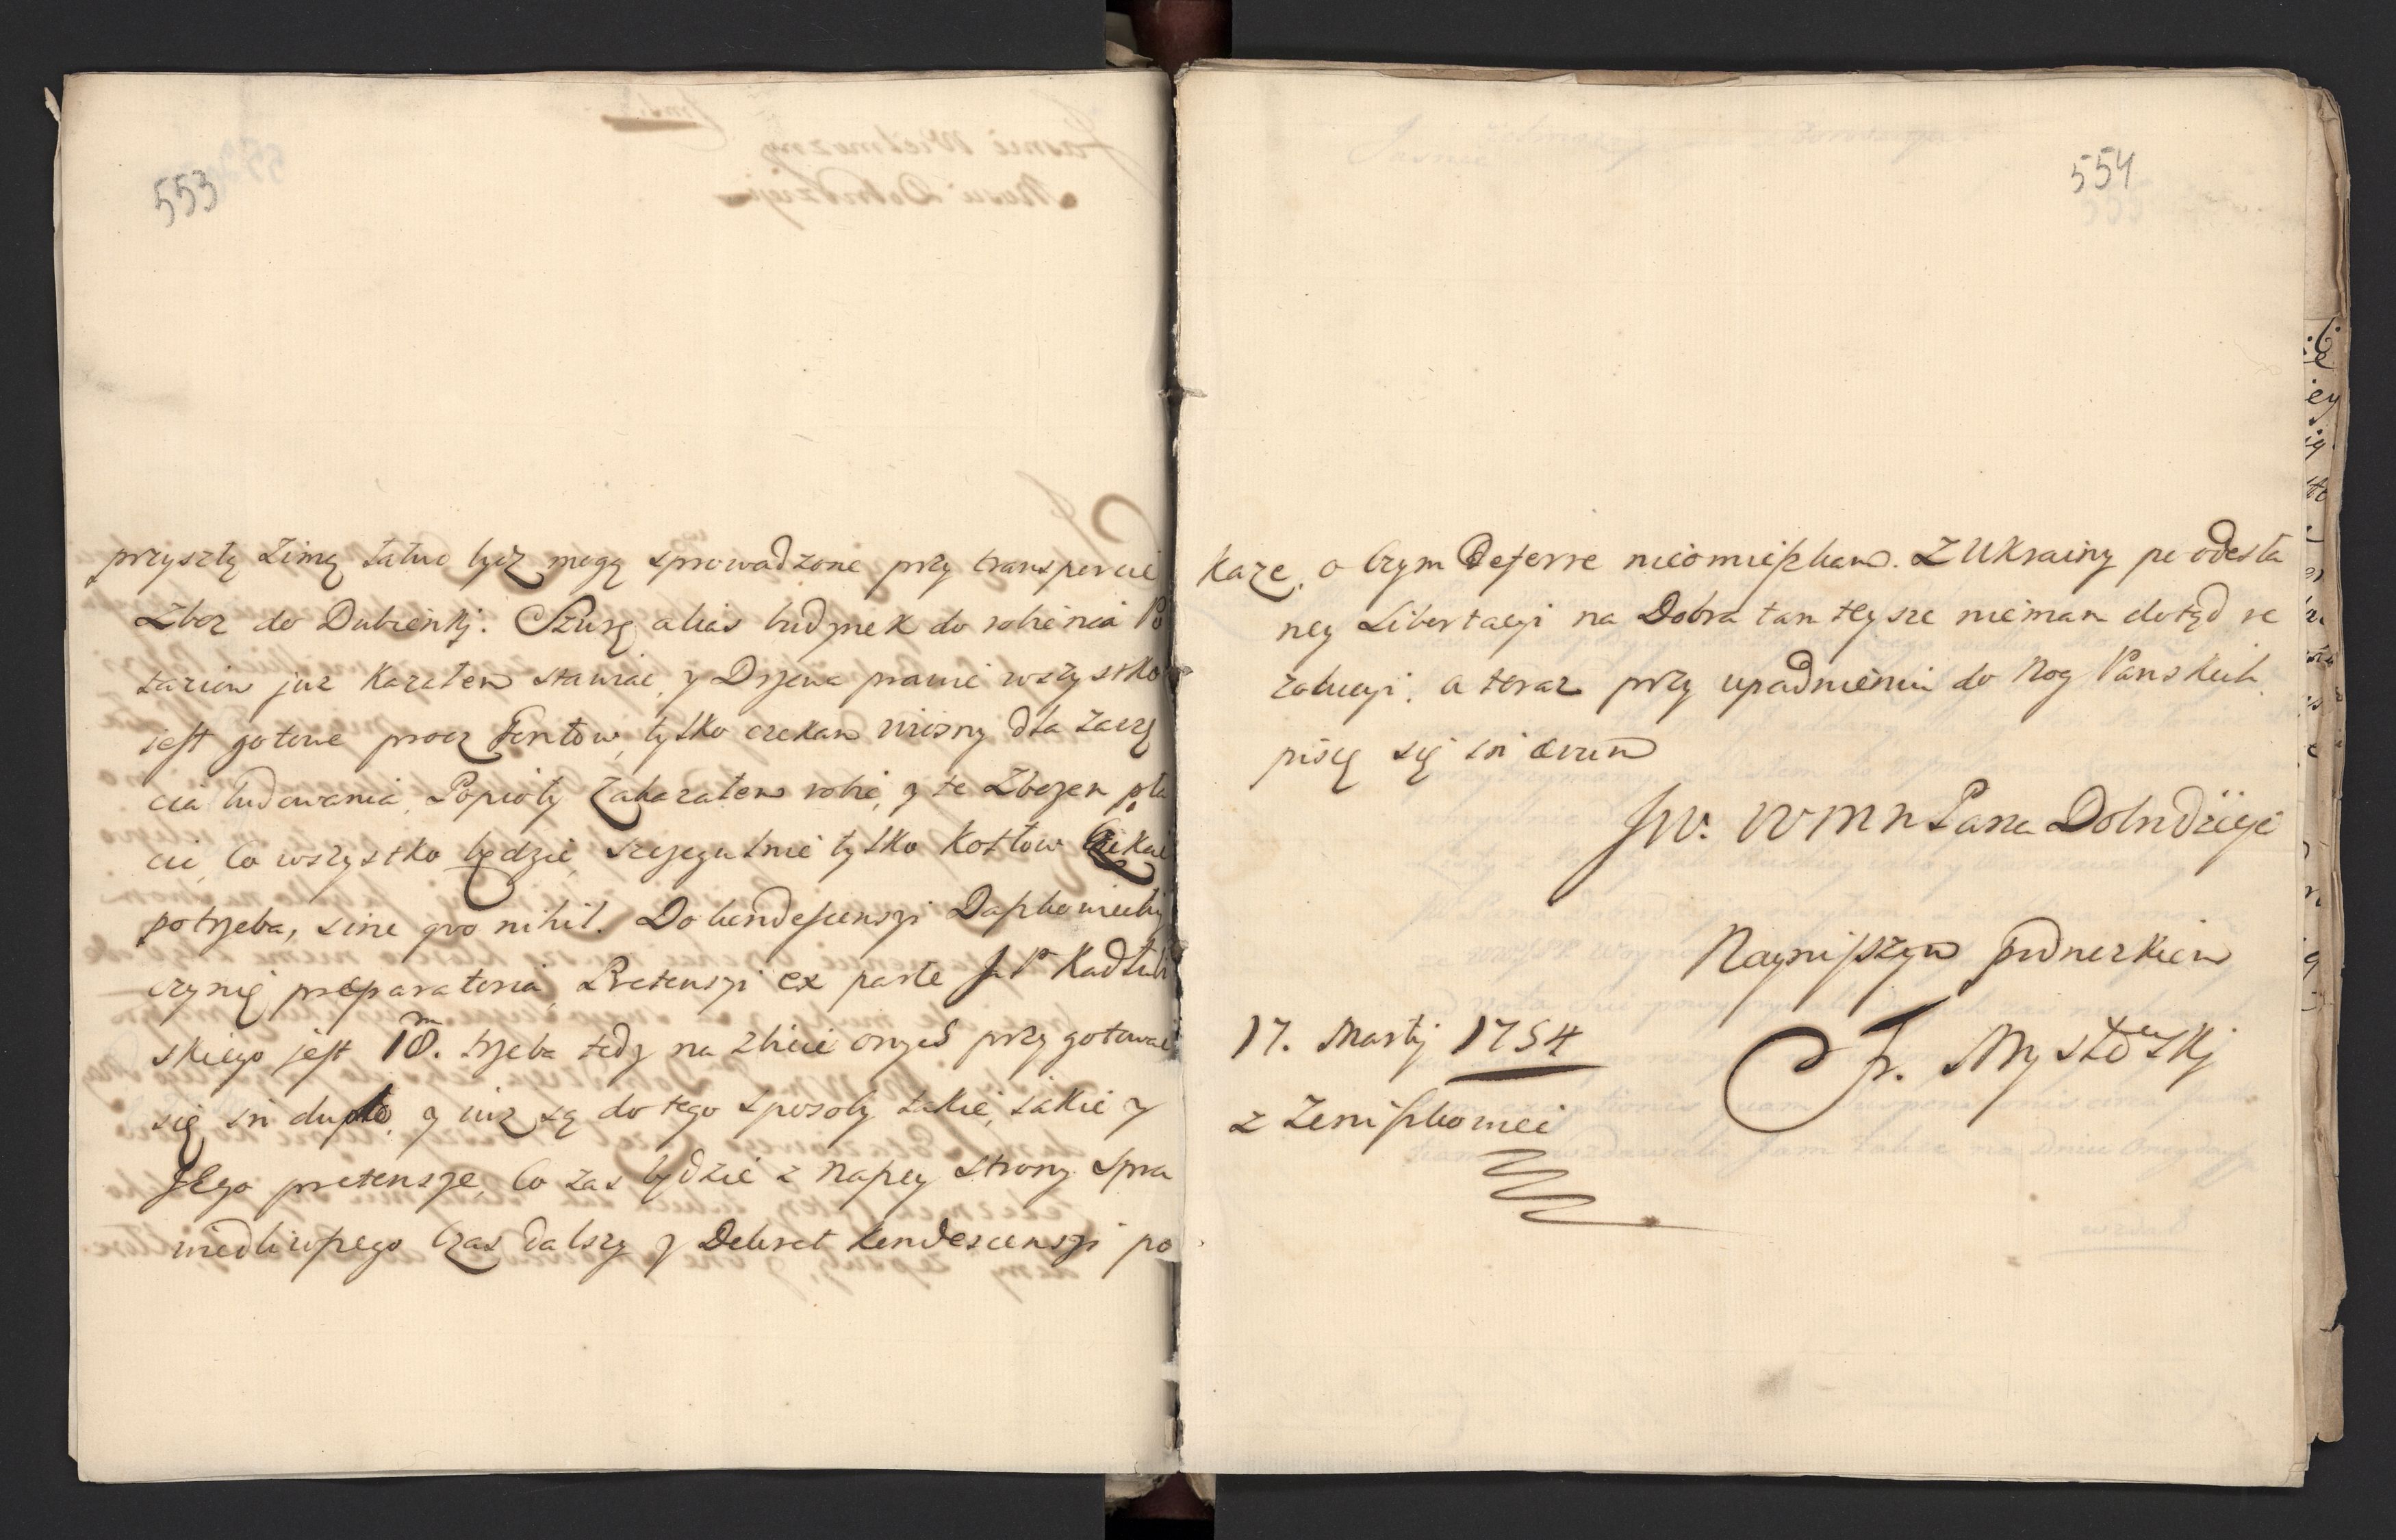 553
przyszłą Zimę łatwo bydz mogą sprowadzone przy transporcie
Zboz do Dubienkj. Szurę alias budynek do robienia Po
tarziow juz kazałem stawiac, y Drzewa prawie wszystko
jest gotowe procz Fortow, tylko czekam wiosny dla zaczę
cia budowania, Popioły zakazałem robic, y te Zbozem pła
cic, Co wszystko będzie, szczegulnie tylko Kotłow Czekac
potrzeba, sine quo nihil. Do kondescensyi
czynię præparatoria, Pretensyi ex parte JP Kadłub
skiego jest 18. trzeba tedy na zbicie onych przygotowac
się in duplo, y juz są do tego sposoby takie, jakie y
Jego pretensye, Co zas będzie z naszey strony spra
wiedliwszego Czas dalszy y Dekret kondescensyi po
554
kaze, o Czym Referre nieomieszkam. Z Ukrainy po odesła
ney Libertacyi na Dobra tamteysze niemam dotąd re
zolucyi, a teraz przy upadnieniu do Nog Panskich
piszę się in ævum
JW. WMM Pana Dobrodzieja
Nayniszszym podnozkiem
Fr. Mysłowskj
17. Martij 1754
z